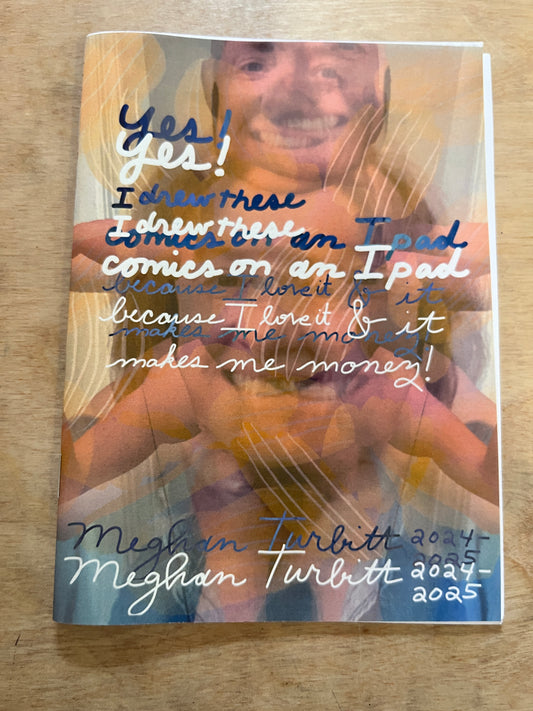 Yes!
Yes!
I drew these
I drew these
comics on an Ipad
comics on an Ipad
because I love it & it
because I love it & it
makes me money!
makes me money!
Meghan Turbitt 2024-
2025
Meghan Turbitt 2024-
2025